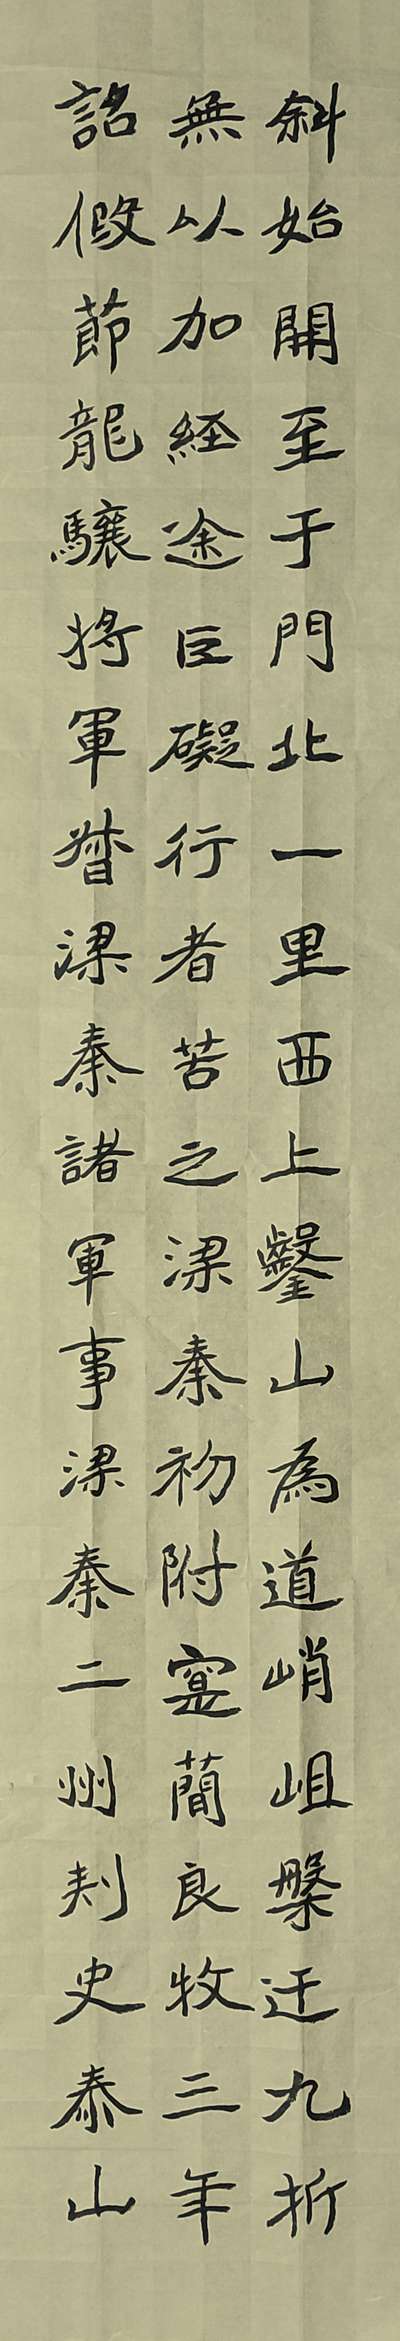 斜始開至于門北一里西上鑿山為道峭岨槃迂九折
無以加経途巨礙行者苦之梁秦初附寔蕳良牧三年
詔假節龍驤將軍督梁秦諸軍事梁秦二州刾史泰山